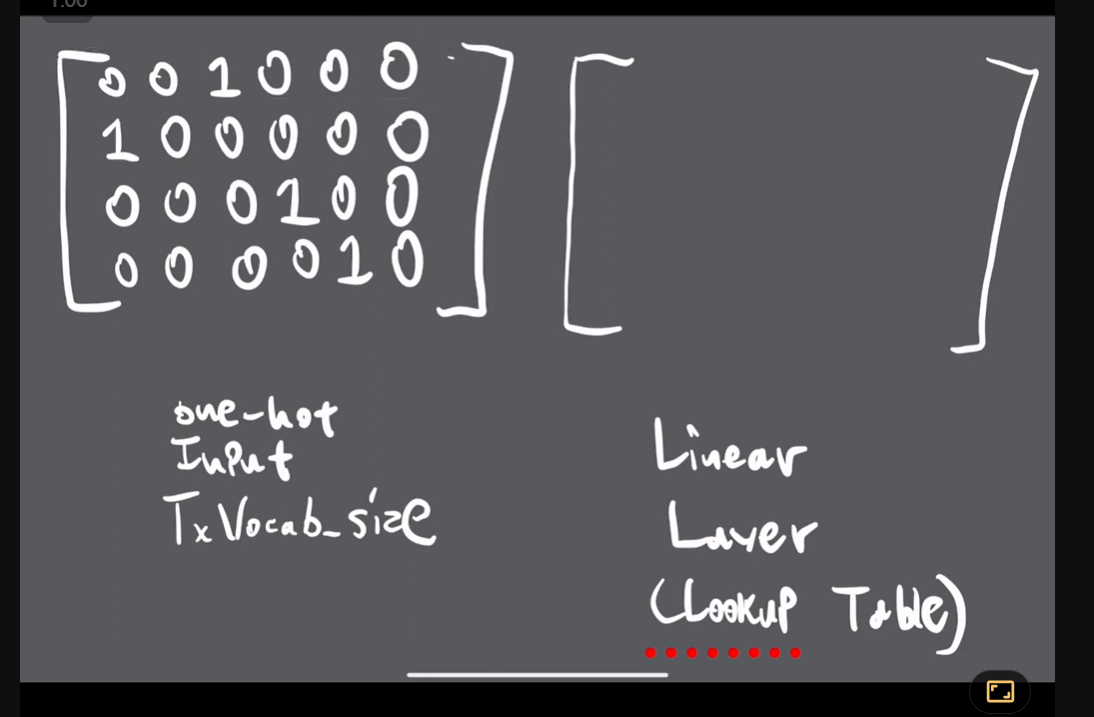 1:00
0 0 1 0 0 0
1 0 0 0 0 0
0 0 0 1 0 0
0 0 0 0 1 0
one-hot
Input
T x Vocab_size
Linear
Layer
(Lookup Table)